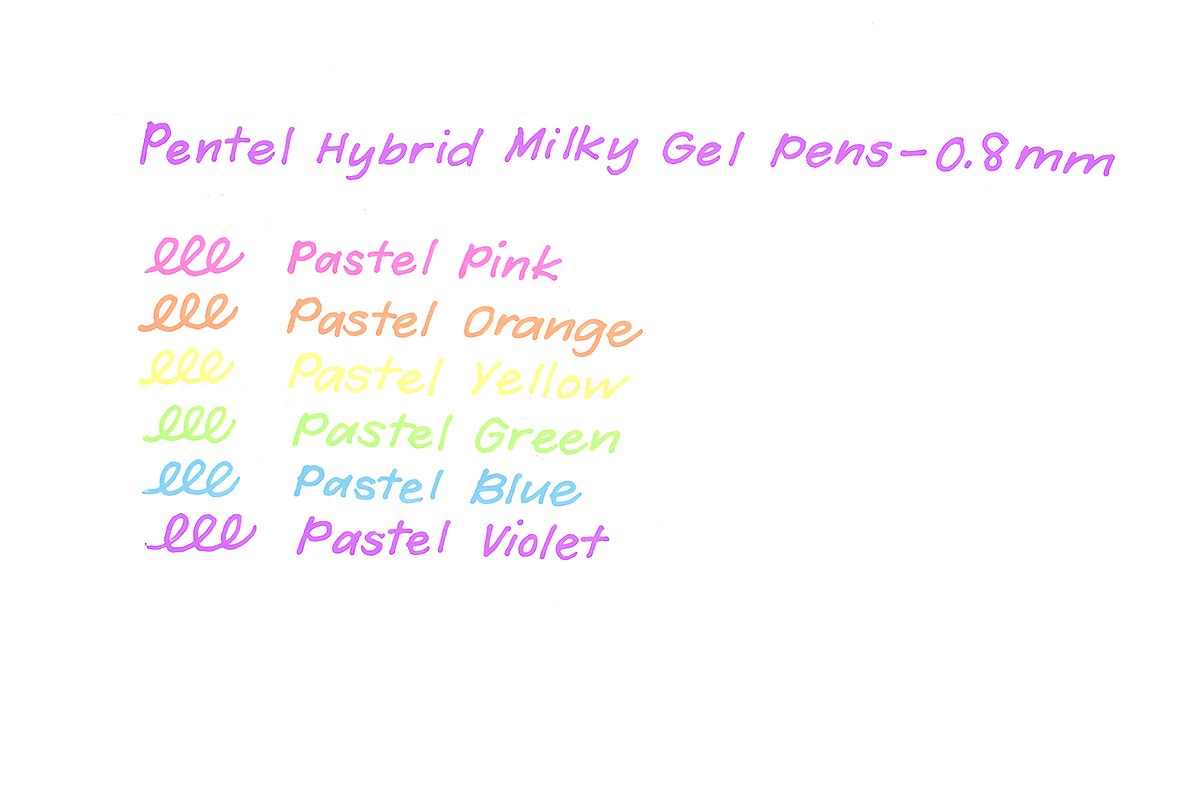 Pentel Hybrid Milky Gel Pens - 0.8mm
Pastel Pink
Pastel Orange
Pastel Yellow
Pastel Green
Pastel Blue
Pastel Violet